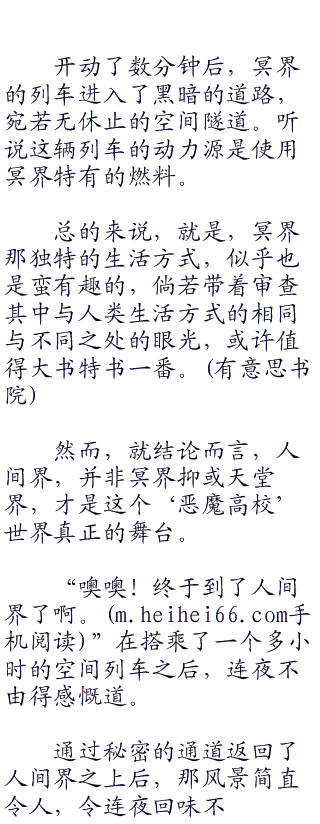 开动了数分钟后，冥界
的列车进入了黑暗的道路，
宛若无休止的空间隧道。听
说这辆列车的动力源是使用
冥界特有的燃料。
总的来说，就是，冥界
那独特的生活方式，似乎也
是蛮有趣的，倘若带着审查
其中与人类生活方式的相同
与不同之处的眼光，或许值
得大书特书一番。(有意思书
院)
然而，就结论而言，人
间界，并非冥界抑或天堂
界，才是这个‘恶魔高校’
世界真正的舞台。
“噢噢！终于到了人间
界了啊。(m.heihei66.com手
机阅读)”在搭乘了一个多小
时的空间列车之后，连夜不
由得感慨道。
通过秘密的通道返回了
人间界之上后，那风景简直
令人，令连夜回味不